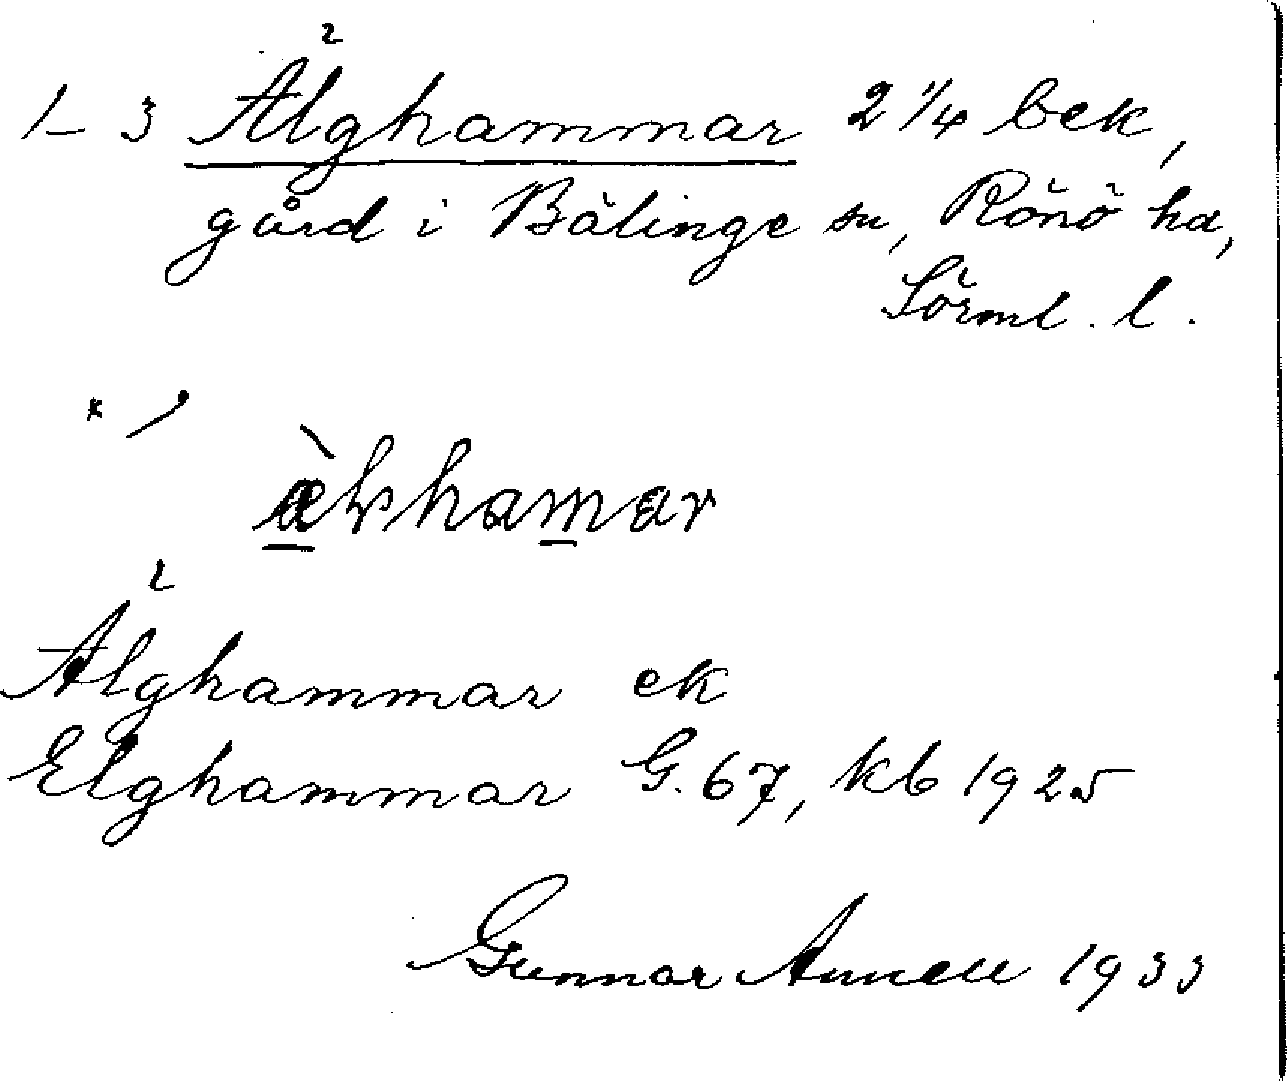 1–3 Älghammar 2 1/4 bek,
gård i Bälinge sn, Rönö hd,
Sörml. l.
Älghammar ek
Elghammar G. 67, kb 1925
Gunnar Annell 1933